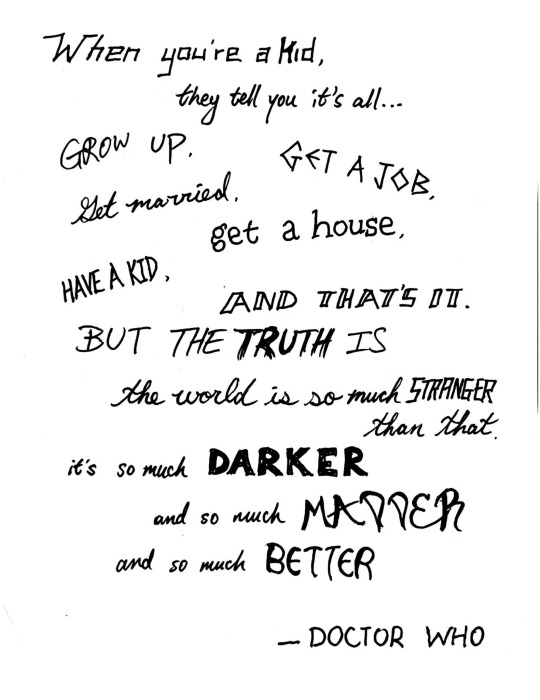 When you're a Kid,
they tell you it's all...
GROW UP. GET A JOB.
Get married.
get a house,
HAVE A KID,
AND THAT'S IT.
BUT THE TRUTH IS
the world is so much STRANGER
than that.
it's so much DARKER
and so much MADDER
and so much BETTER
— DOCTOR WHO